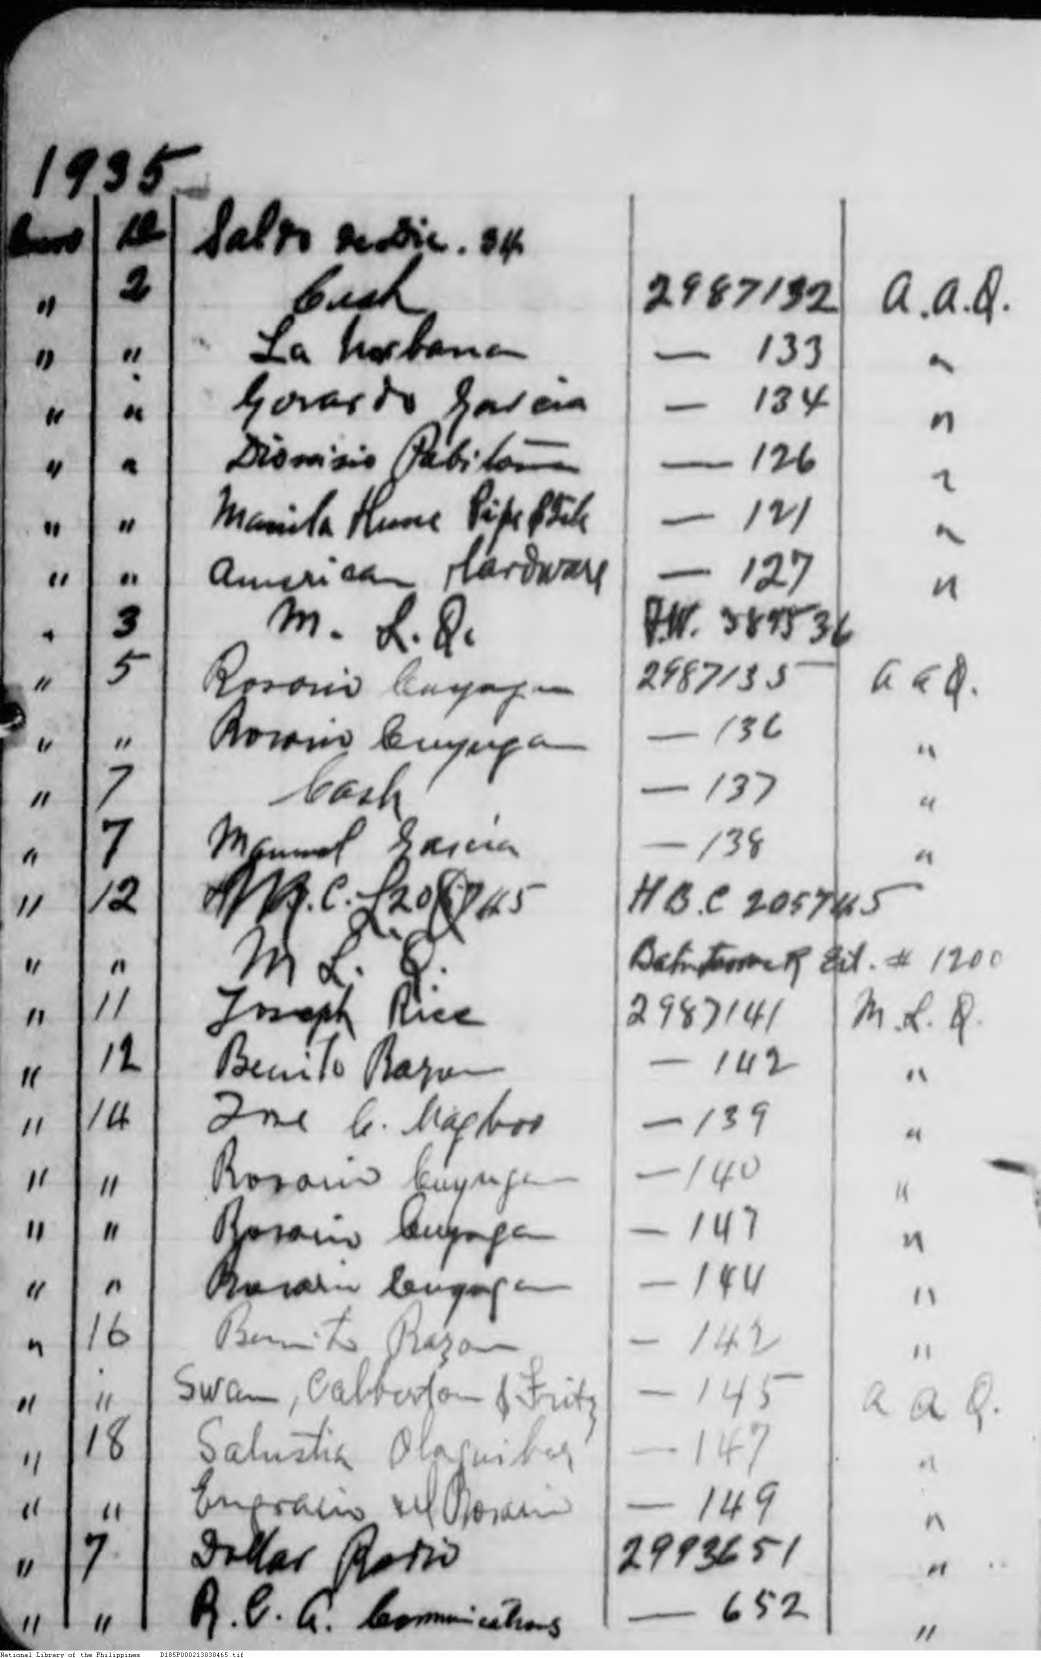 1935
Enero 10 Saldo de Dic. 34
" 2 Cash 2987132 A.A.Q.
" " La Urbana — 133 "
" " Gerardo Garcia — 134 "
" " Dionisio — 126 "
" " Manila Hume Pipe & Tile — 121 "
" " American Hardware — 127 "
" 3 M. L. Q. P.W. 389536
" 5 Rosario Cuyugan 2987135 A A Q.
" " Rosario Cuyugan — 136 "
" 7 Cash — 137 "
" 7 Manuel Garcia — 138 "
" 12 H B.C 205745
" " M L. Q. Est. # 1200
" 11 Joseph Rice 2987141 M. L. Q.
" 12 Benito Razon — 142 "
" 14 Jose C. Magboo — 139 "
" " Rosario Cuyugan — 140 "
" " Rosario Cuyugan — 147 "
" " Rosario Cuyugan — 144 "
" 16 Benito Razon — 142 "
" " Swan, Culbertson & Fritz — 145 A A Q.
" 18 Salustia Olaguibel — 147 "
" " Engracio del Rosario — 149 "
" 7 Dollar Radio 2993651 "
" " R. C. A. Communications — 652 "
National Library of the Philippines D185P000213838465.tif